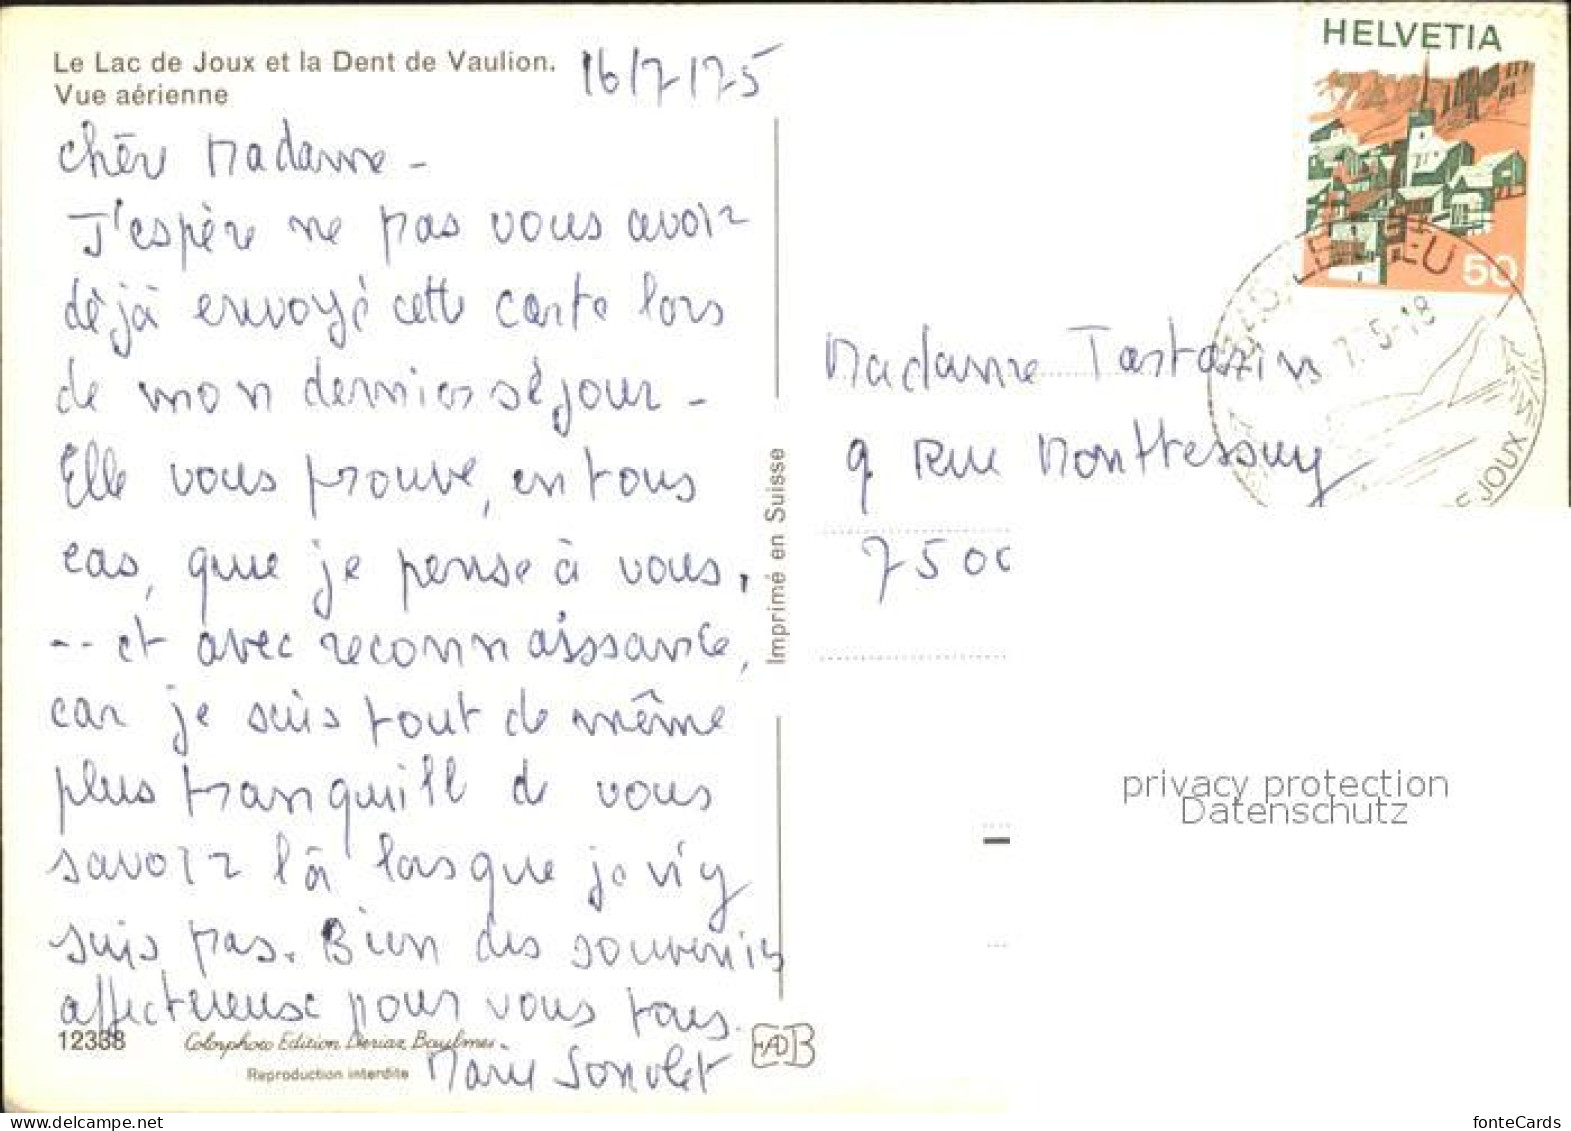 Le Lac de Joux et la Dent de Vaulion.
Vue aérienne
16/7/75
Chère Madame -
J'espère ne pas vous avoir
déjà envoyé cette carte lors
de mon dernier séjour -
Elle vous prouve, en tous
cas, que je pense à vous,
-- et avec reconnaissance,
car je suis tout de même
plus tranquille de vous
savoir là lorsque je n'y
suis pas. Bien des souvenirs
affectueuse pour vous tous.
Marie
12338
Colorphoto Edition Deriaz Baulmes
Reproduction interdite
Imprimé en Suisse
HELVETIA
50
LE LIEU
7.75-18
DE JOUX
Madame Tartazin
9 Rue Monttessuy
7500
privacy protection
Datenschutz
fonteCards